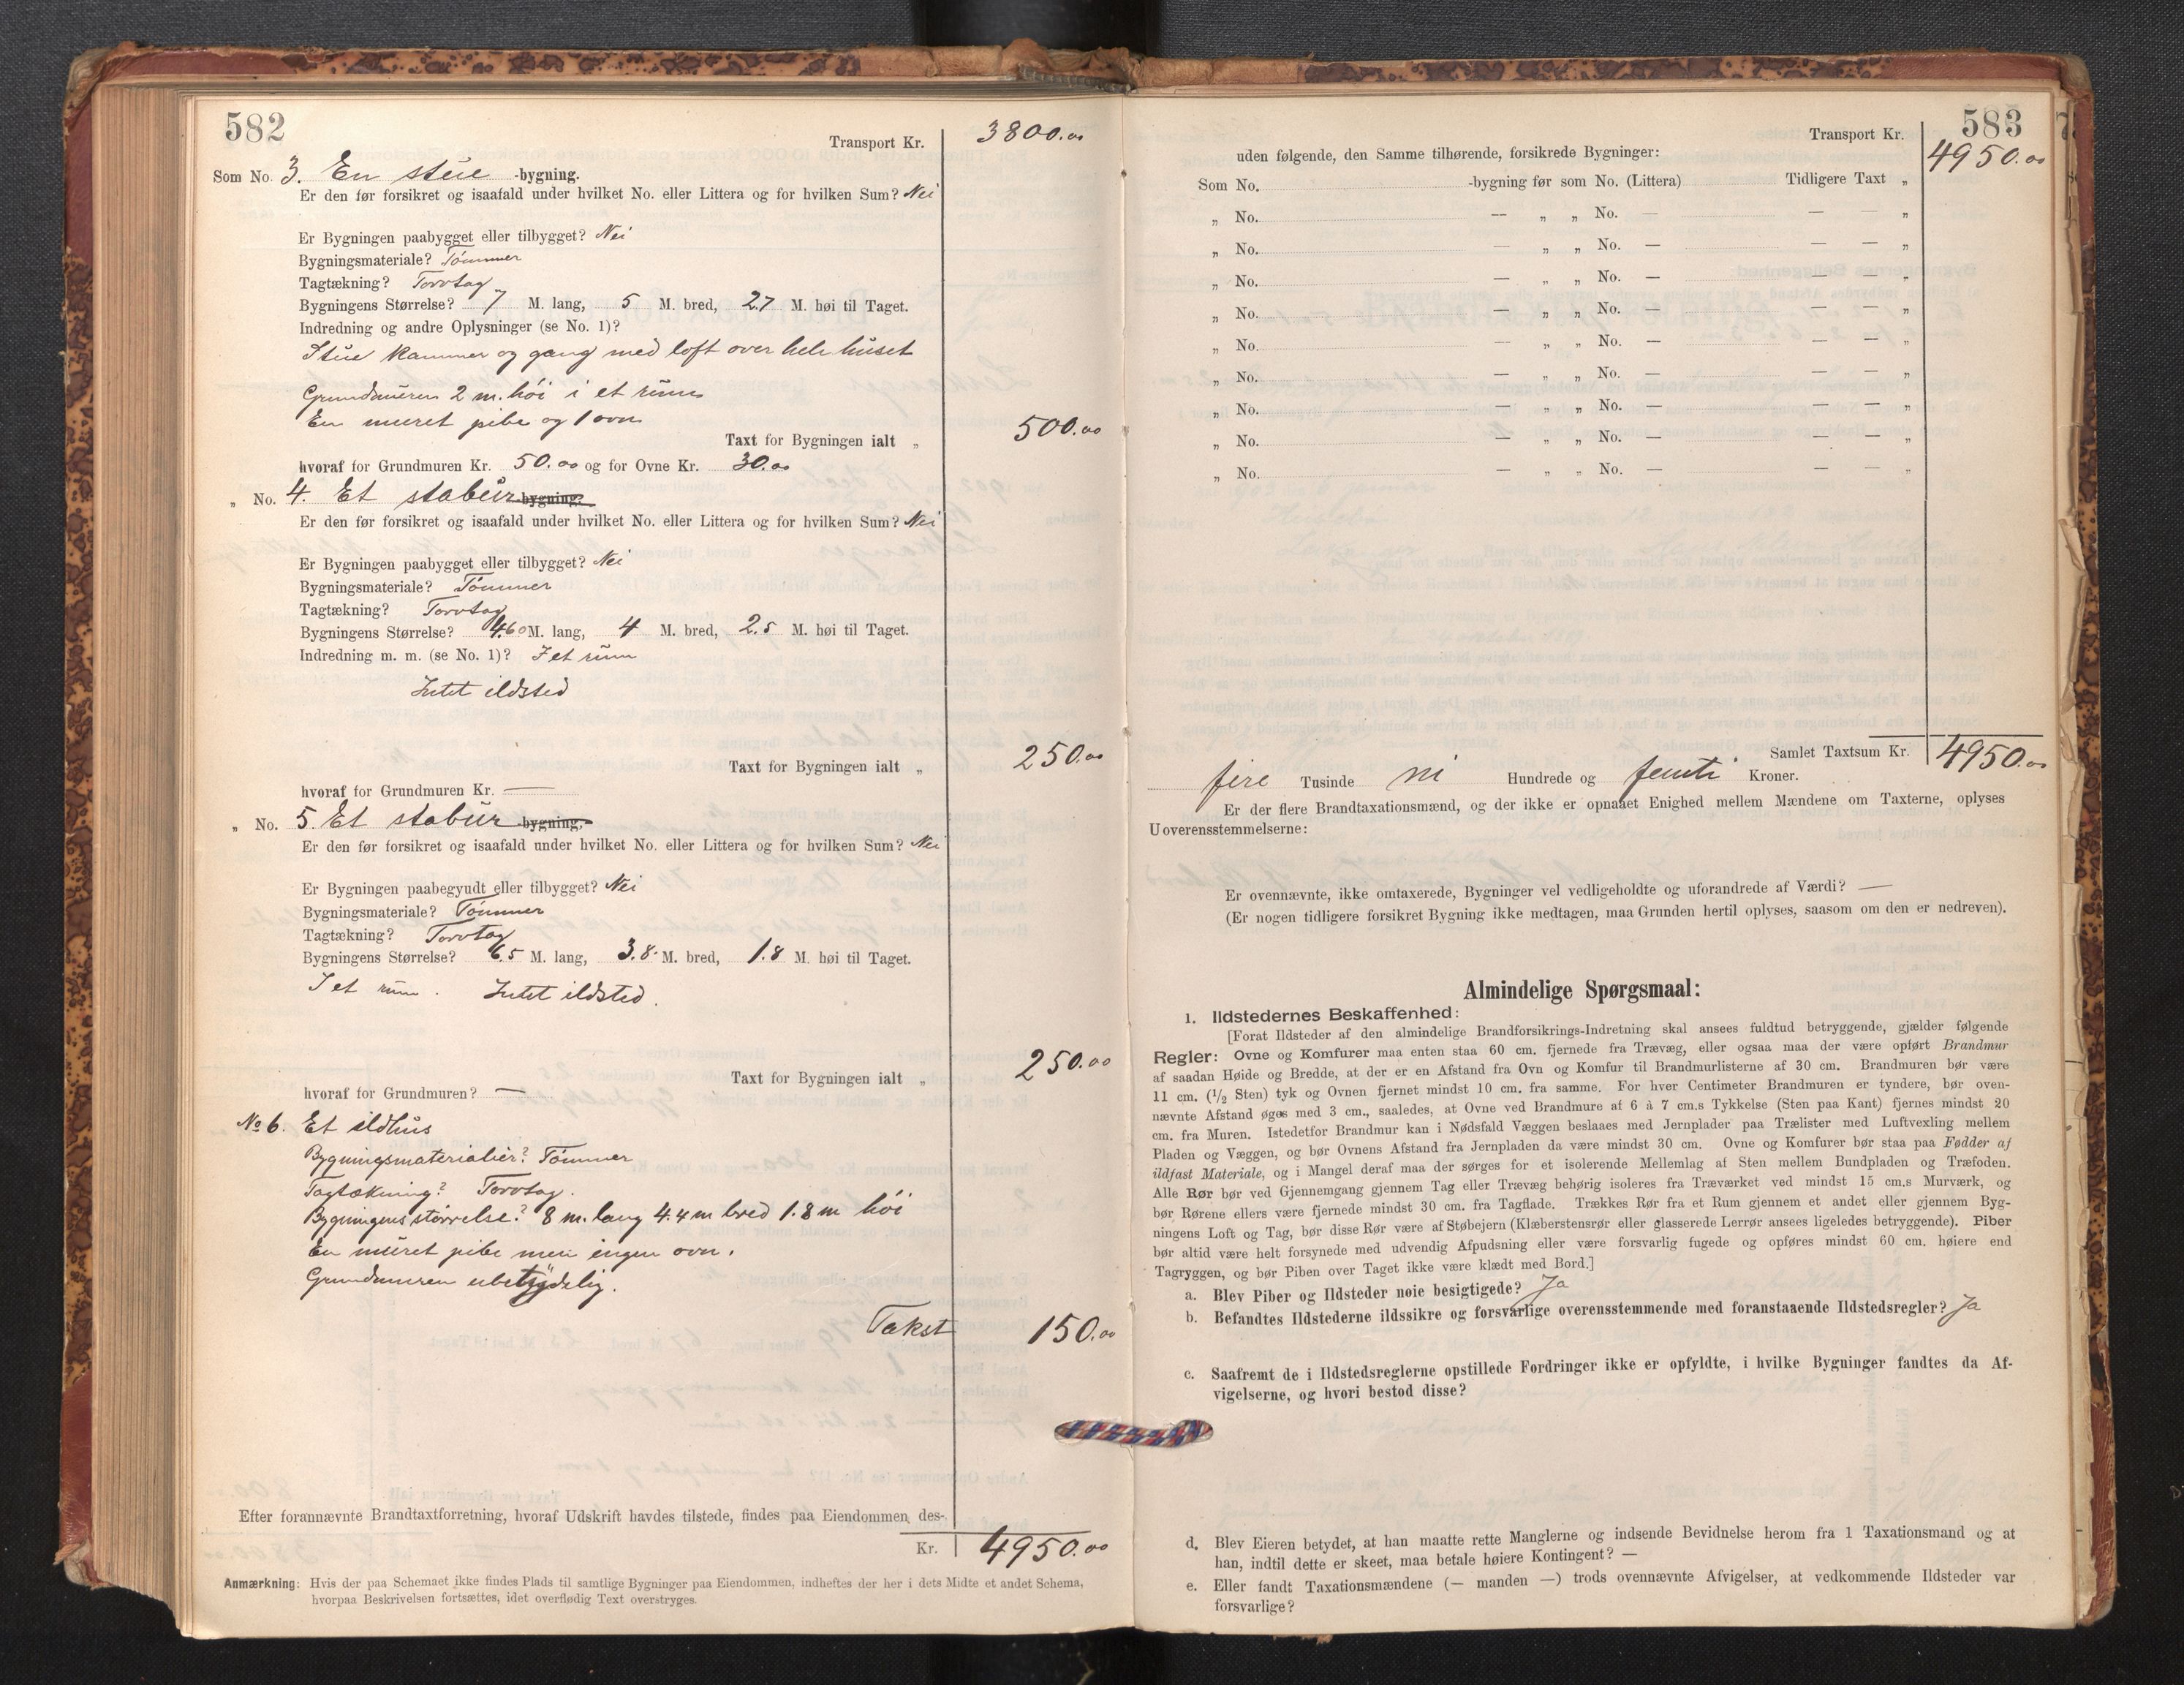 582
Transport Kr. 3800.00
Som No. 3. En stue -bygning.
Er den før forsikret og isaafald under hvilket No. eller Littera og for hvilken Sum? Nei
Er Bygningen paabygget eller tilbygget? Nei
Bygningsmateriale? Tömmer
Tagtækning? Torvtag
Bygningens Størrelse? 7 M. lang, 5 M. bred, 2.7 M. høi til Taget.
Indredning og andre Oplysninger (se No. 1)?
Stue kammer og gang med loft over hele huset
Grundmuren 2 m. höi i et rum
En muret pibe og 1 ovn
Taxt for Bygningen ialt „ 500.00
hvoraf for Grundmuren Kr. 50.00 og for Ovne Kr. 30.00
„ No. 4. Et stabur -bygning.
Er den før forsikret og isaafald under hvilket No. eller Littera og for hvilken Sum? Nei
Er Bygningen paabygget eller tilbygget? Nei
Bygningsmateriale? Tömmer
Tagtækning? Torvtag
Bygningens Størrelse? 4.60 M. lang, 4 M. bred, 2.5 M. høi til Taget.
Indredning m. m. (se No. 1)? I et rum
Intet ildsted
Taxt for Bygningen ialt „ 250.00
hvoraf for Grundmuren Kr. —
„ No. 5. Et stabur -bygning.
Er den før forsikret og isaafald under hvilket No. eller Littera og for hvilken Sum? Nei
Er Bygningen paabegyudt eller tilbygget? Nei
Bygningsmateriale? Tömmer
Tagtækning? Torvtag
Bygningens Størrelse? 6.5 M. lang, 3.8 M. bred, 1.8 M. høi til Taget.
I et rum. Intet ildsted.
Taxt for Bygningen ialt „ 250.00
hvoraf for Grundmuren? —
No 6. Et ildhus
Bygningsmaterialier? Tömmer
Tagtækning? Torvtag.
Bygningens störrelse? 8 m. lang 4.4 m bred 1.8 m höi
En muret pibe men ingen ovn.
Grundmuren ubetydelig.
Takst 150.00
Efter forannævnte Brandtaxtforretning, hvoraf Udskrift havdes tilstede, findes paa Eiendommen des-
Kr. 4950.00
Anmærkning: Hvis der paa Schemaet ikke findes Plads til samtlige Bygninger paa Eiendommen, indheftes der her i dets Midte et andet Schema,
hvorpaa Beskrivelsen fortsættes, idet overflødig Text overstryges.
583
Transport Kr. 4950.00
uden følgende, den Samme tilhørende, forsikrede Bygninger:
Som No. -bygning før som No. (Littera) Tidligere Taxt „
„ No. — „ „ No. — — — „
„ No. — „ „ No. — — — „
„ No. — „ „ No. — — — „
„ No. — „ „ No. — — — „
„ No. — „ „ No. — — — „
„ No. — „ „ No. — — — „
„ No. — „ „ No. — — — „
„ No. — „ „ No. — — — „
„ No. — „ „ No. — — — „
Samlet Taxtsum Kr. 4950.00
fire Tusinde ni Hundrede og femti Kroner.
Er der flere Brandtaxationsmænd, og der ikke er opnaaet Enighed mellem Mændene om Taxterne, oplyses
Uoverensstemmelserne:
Er ovennævnte, ikke omtaxerede, Bygninger vel vedligeholdte og uforandrede af Værdi? —
(Er nogen tidligere forsikret Bygning ikke medtagen, maa Grunden hertil oplyses, saasom om den er nedreven).
Almindelige Spørgsmaal:
1. Ildstedernes Beskaffenhed:
[Forat Ildsteder af den almindelige Brandforsikrings-Indretning skal ansees fuldtud betryggende, gjælder følgende
Regler: Ovne og Komfurer maa enten staa 60 cm. fjernede fra Trævæg, eller ogsaa maa der være opført Brandmur
af saadan Høide og Bredde, at der er en Afstand fra Ovn og Komfur til Brandmurlisterne af 30 cm. Brandmuren bør være
11 cm. (1/2 Sten) tyk og Ovnen fjernet mindst 10 cm. fra samme. For hver Centimeter Brandmuren er tyndere, bør oven-
nævnte Afstand øges med 3 cm., saaledes, at Ovne ved Brandmure af 6 à 7 cm.s Tykkelse (Sten paa Kant) fjernes mindst 20
cm. fra Muren. Istedetfor Brandmur kan i Nødsfald Væggen beslaaes med Jernplader paa Trælister med Luftvexling mellem
Pladen og Væggen, og bør Ovnens Afstand fra Jernpladen da være mindst 30 cm. Ovne og Komfurer bør staa paa Fødder af
ildfast Materiale, og i Mangel deraf maa der sørges for et isolerende Mellemlag af Sten mellem Bundpladen og Træfoden.
Alle Rør bør ved Gjennemgang gjennem Tag eller Trævæg behørig isoleres fra Træværket ved mindst 15 cm.s Murværk, og
bør Rørene ellers være fjernede mindst 30 cm. fra Tagflade. Trækkes Rør fra et Rum gjennem et andet eller gjennem Byg-
ningens Loft og Tag, bør disse Rør være af Støbejern (Klæberstensrør eller glasserede Lerrør ansees ligeledes betryggende). Piber
bør altid være helt forsynede med udvendig Afpudsning eller være forsvarlig fugede og opføres mindst 60 cm. høiere end
Tagryggen, og bør Piben over Taget ikke være klædt med Bord.]
a. Blev Piber og Ildsteder nøie besigtigede? Ja
b. Befandtes Ildstederne ildssikre og forsvarlige overensstemmende med foranstaaende Ildstedsregler? Ja
c. Saafremt de i Ildstedsreglerne opstillede Fordringer ikke er opfyldte, i hvilke Bygninger fandtes da Af-
vigelserne, og hvori bestod disse?
d. Blev Eieren betydet, at han maatte rette Manglerne og indsende Bevidnelse herom fra 1 Taxationsmand og at
han, indtil dette er skeet, maa betale høiere Kontingent? —
e. Eller fandt Taxationsmændene (— manden —) trods ovennævnte Afvigelser, at vedkommende Ildsteder var
forsvarlige?